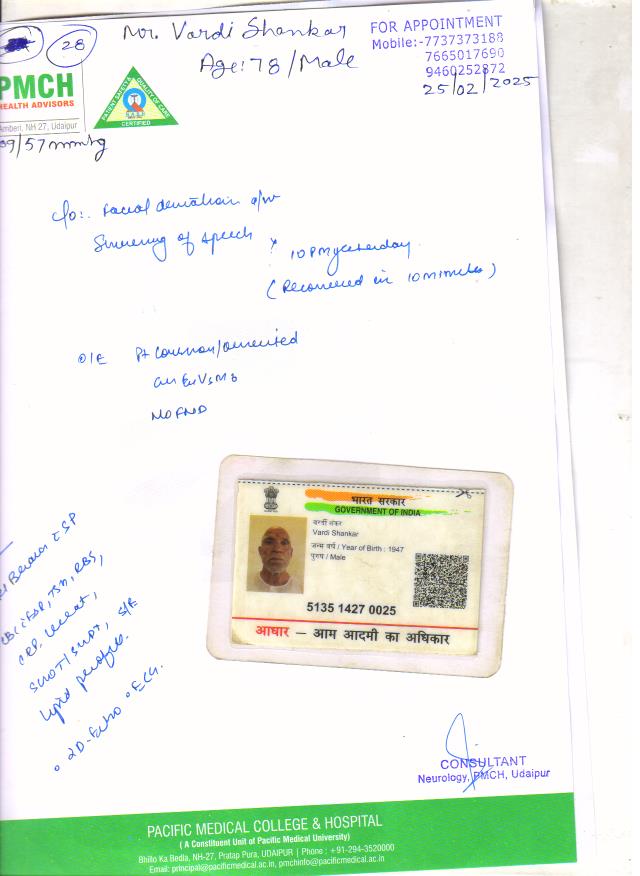 28
Mr. Vardi Shankar
Age: 78 / Male
FOR APPOINTMENT
Mobile:-7737373188
7665017690
9460252872
25/02/2025
PMCH
HEALTH ADVISORS
Amberi, NH 27, Udaipur
PATIENT SAFETY & QUALITY OF CARE
CERTIFIED
09/57 mmHg
c/o:. Facial deviation
Slurring of speech × 10 PM yesterday
(Recovered in 10 minutes)
O/E Pt conscious/oriented
NO FND
TSH, RBS,
CRP,
SGOT/SGPT, S/E
Lipid profile.
• 2D-Echo • ECG.
भारत सरकार
GOVERNMENT OF INDIA
वरदी शंकर
Vardi Shankar
जन्म वर्ष / Year of Birth : 1947
पुरुष / Male
5135 1427 0025
आधार – आम आदमी का अधिकार
CONSULTANT
Neurology, PMCH, Udaipur
PACIFIC MEDICAL COLLEGE & HOSPITAL
( A Constituent Unit of Pacific Medical University)
Bhillo Ka Bedla, NH-27, Pratap Pura, UDAIPUR | Phone : +91-294-3520000
Email: principal@pacificmedical.ac.in, pmchinfo@pacificmedical.ac.in